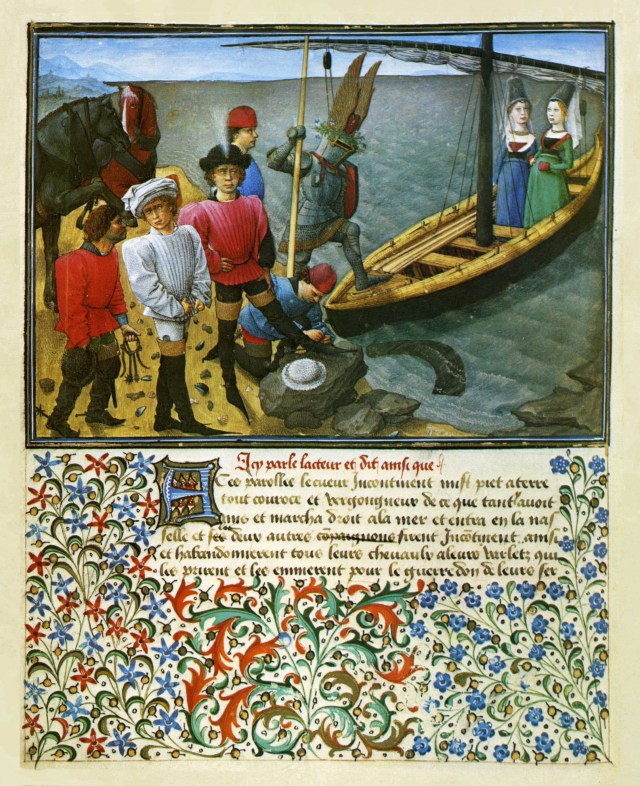 Icy parle lacteur et dit ainsi que
A Ces parolles lecueur Incontinent mist piet aterre
tout couroce et vergongneux de ce que tant auoit
mis et marcha droit ala mer et entra en la nas
selle et ses deux autres copaignons firent Incontinent ainsi
et habandonnerent tous leurs cheuaulx aleurs varletz qui
les prirent et les emmenerent pour le guerredon de leurs ser